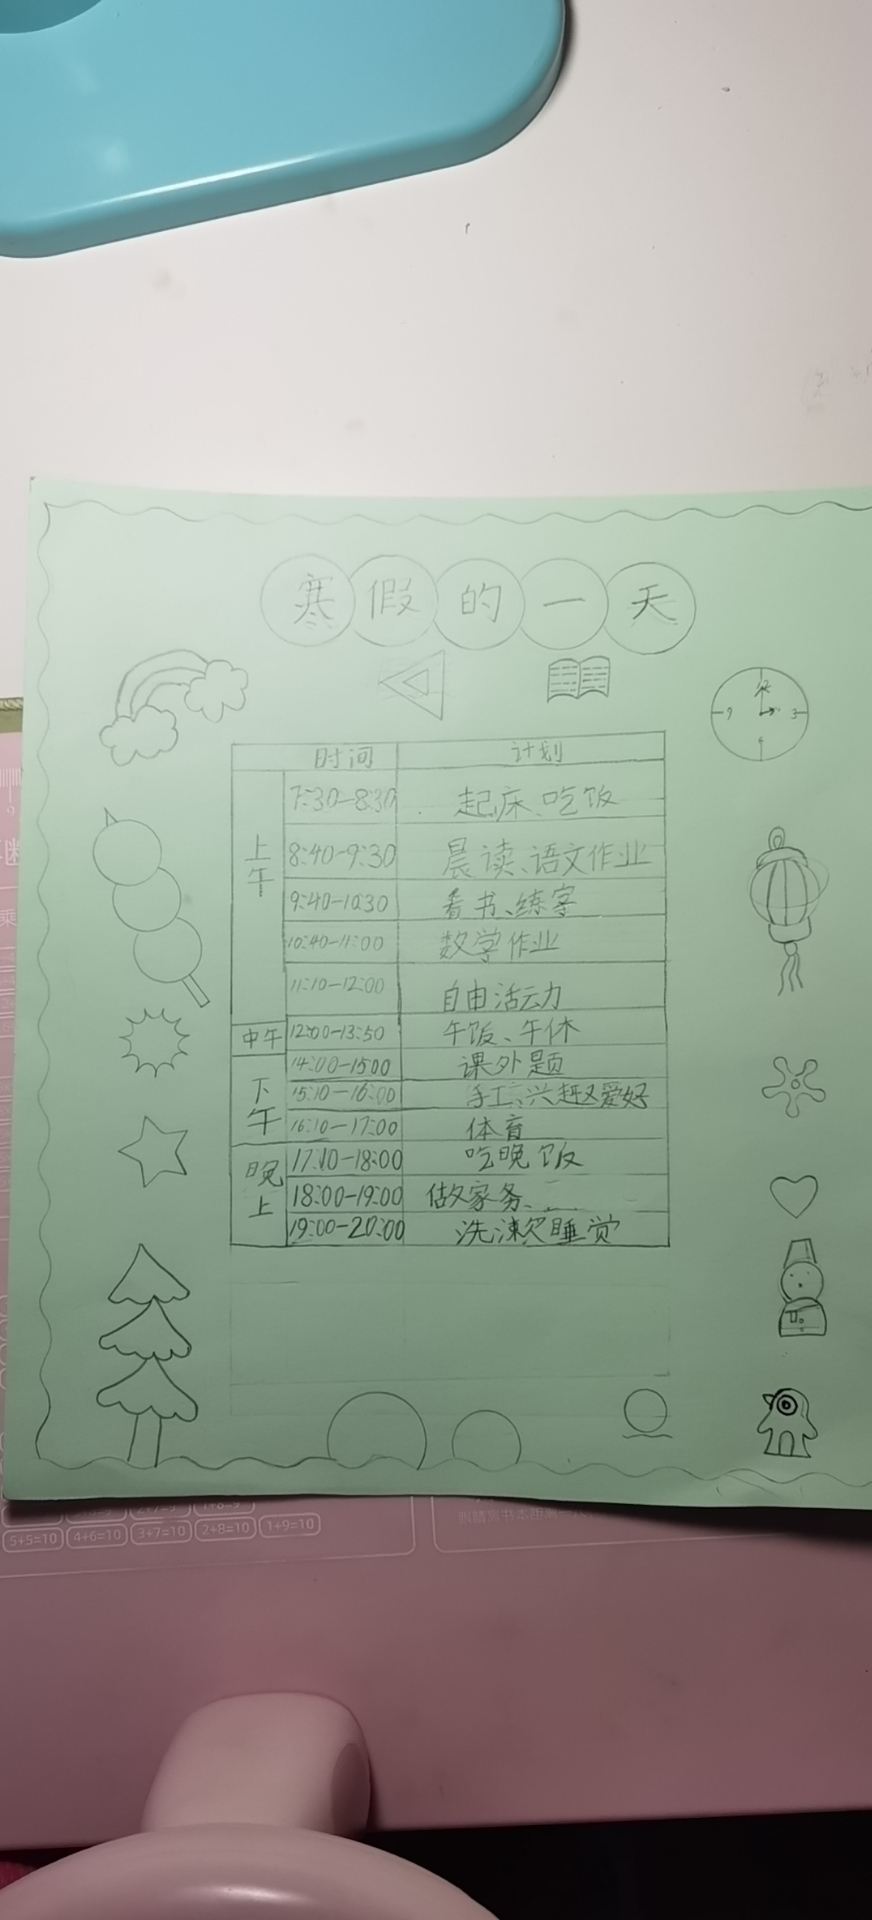 寒假的一天
12
9 3
时间 计划
上午
7:30-8:30 起床、吃饭
8:40-9:30 晨读、语文作业
9:40-10:30 看书、练字
10:40-11:00 数学作业
11:10-12:00 自由活动
中午 12:00-13:50 午饭、午休
下午
14:00-15:00 课外题
15:10-16:00 手工、兴趣爱好
16:10-17:00 体育
晚上
17:10-18:00 吃晚饭
18:00-19:00 做家务、
19:00-20:00 洗漱睡觉
5+5=10 4+6=10 3+7=10 2+8=10 1+9=10